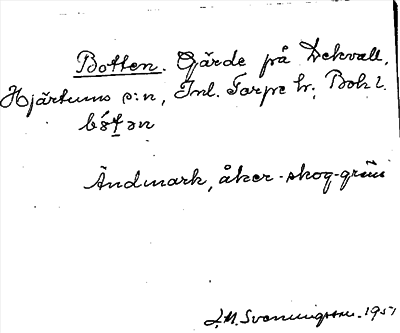 Botten. Gärde på Dekvall,
Hjärtums s:n, Inl. Torpe hr; Boh l.
Ändmark, åker-skog-gräns
J.M. Svenningsson. 1951